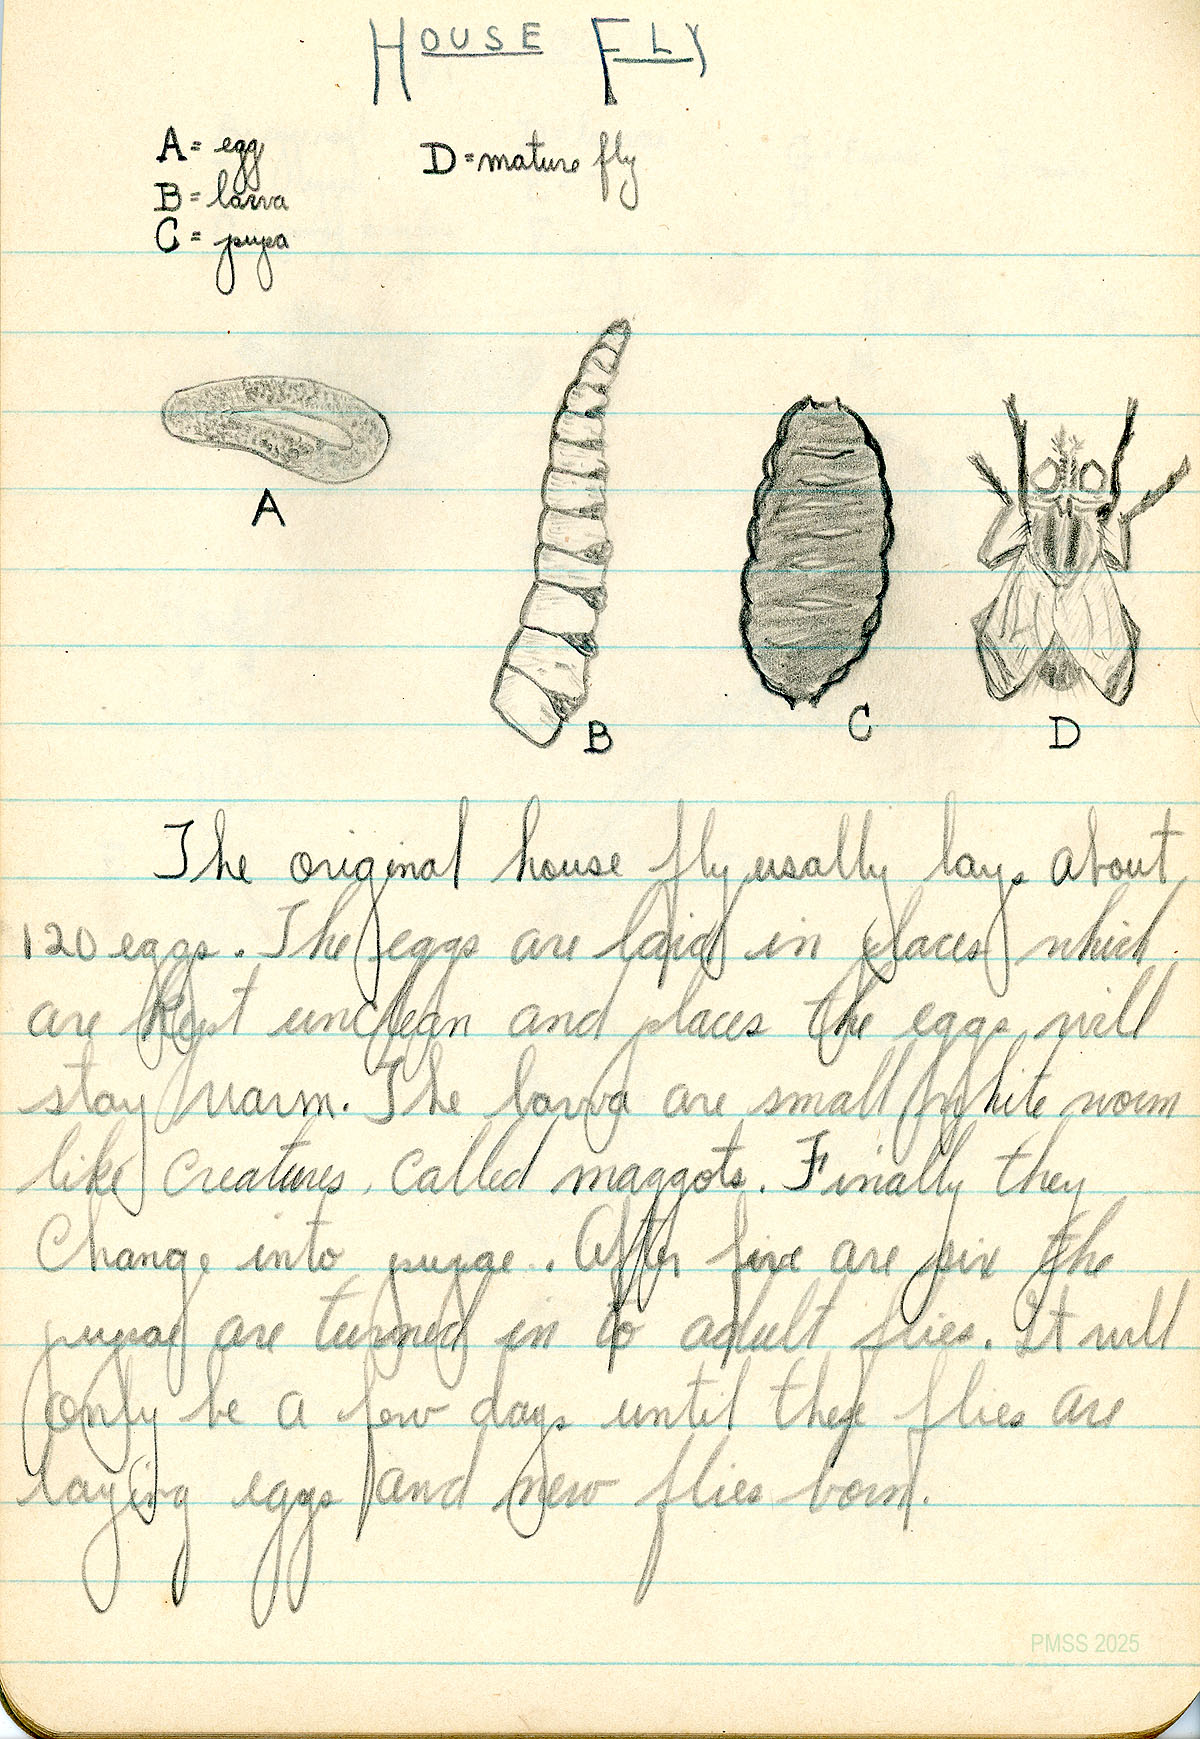 HOUSE FLY
A = egg
D = mature fly
B = larva
C = pupa
A
B
C
D
The original house fly usally lays about
120 eggs. The eggs are laid in places which
are kept unclean and places the eggs will
stay warm. The larva are small white worm
like creatures, called maggots. Finally they
Change into pupae. After five are six the
pupae are turned in to adult flies. It will
only be a few days until these flies are
laying eggs and new flies born.
PMSS 2025